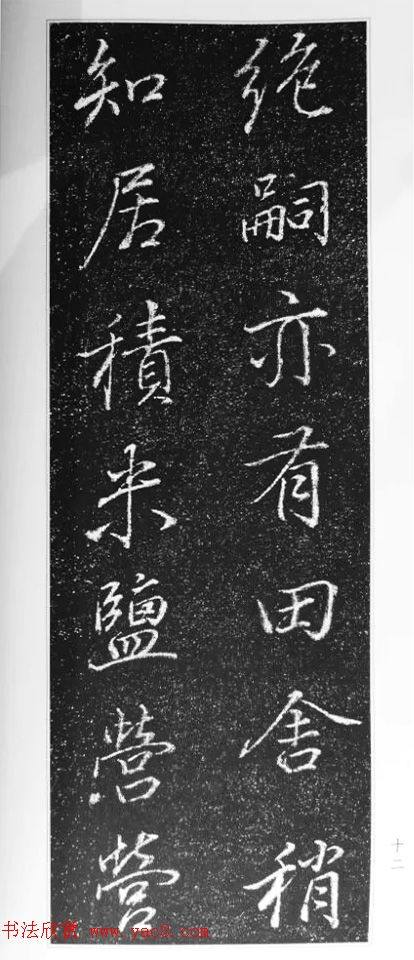 絶嗣亦有田舍稍
知居積米鹽營營
十二
书法欣赏 www.yac8.com